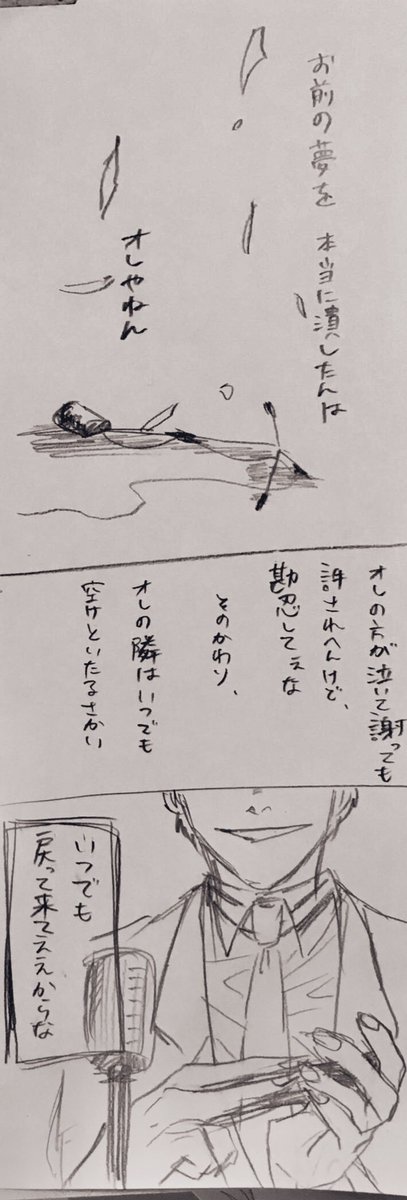 お前の夢を 本当に潰したんは
オレやねん
オレの方が泣いて謝っても
許されへんけど、
勘忍してぇな
そのかわり、
オレの隣はいつでも
空けといたるさかい
いつでも
戻って来てええからな